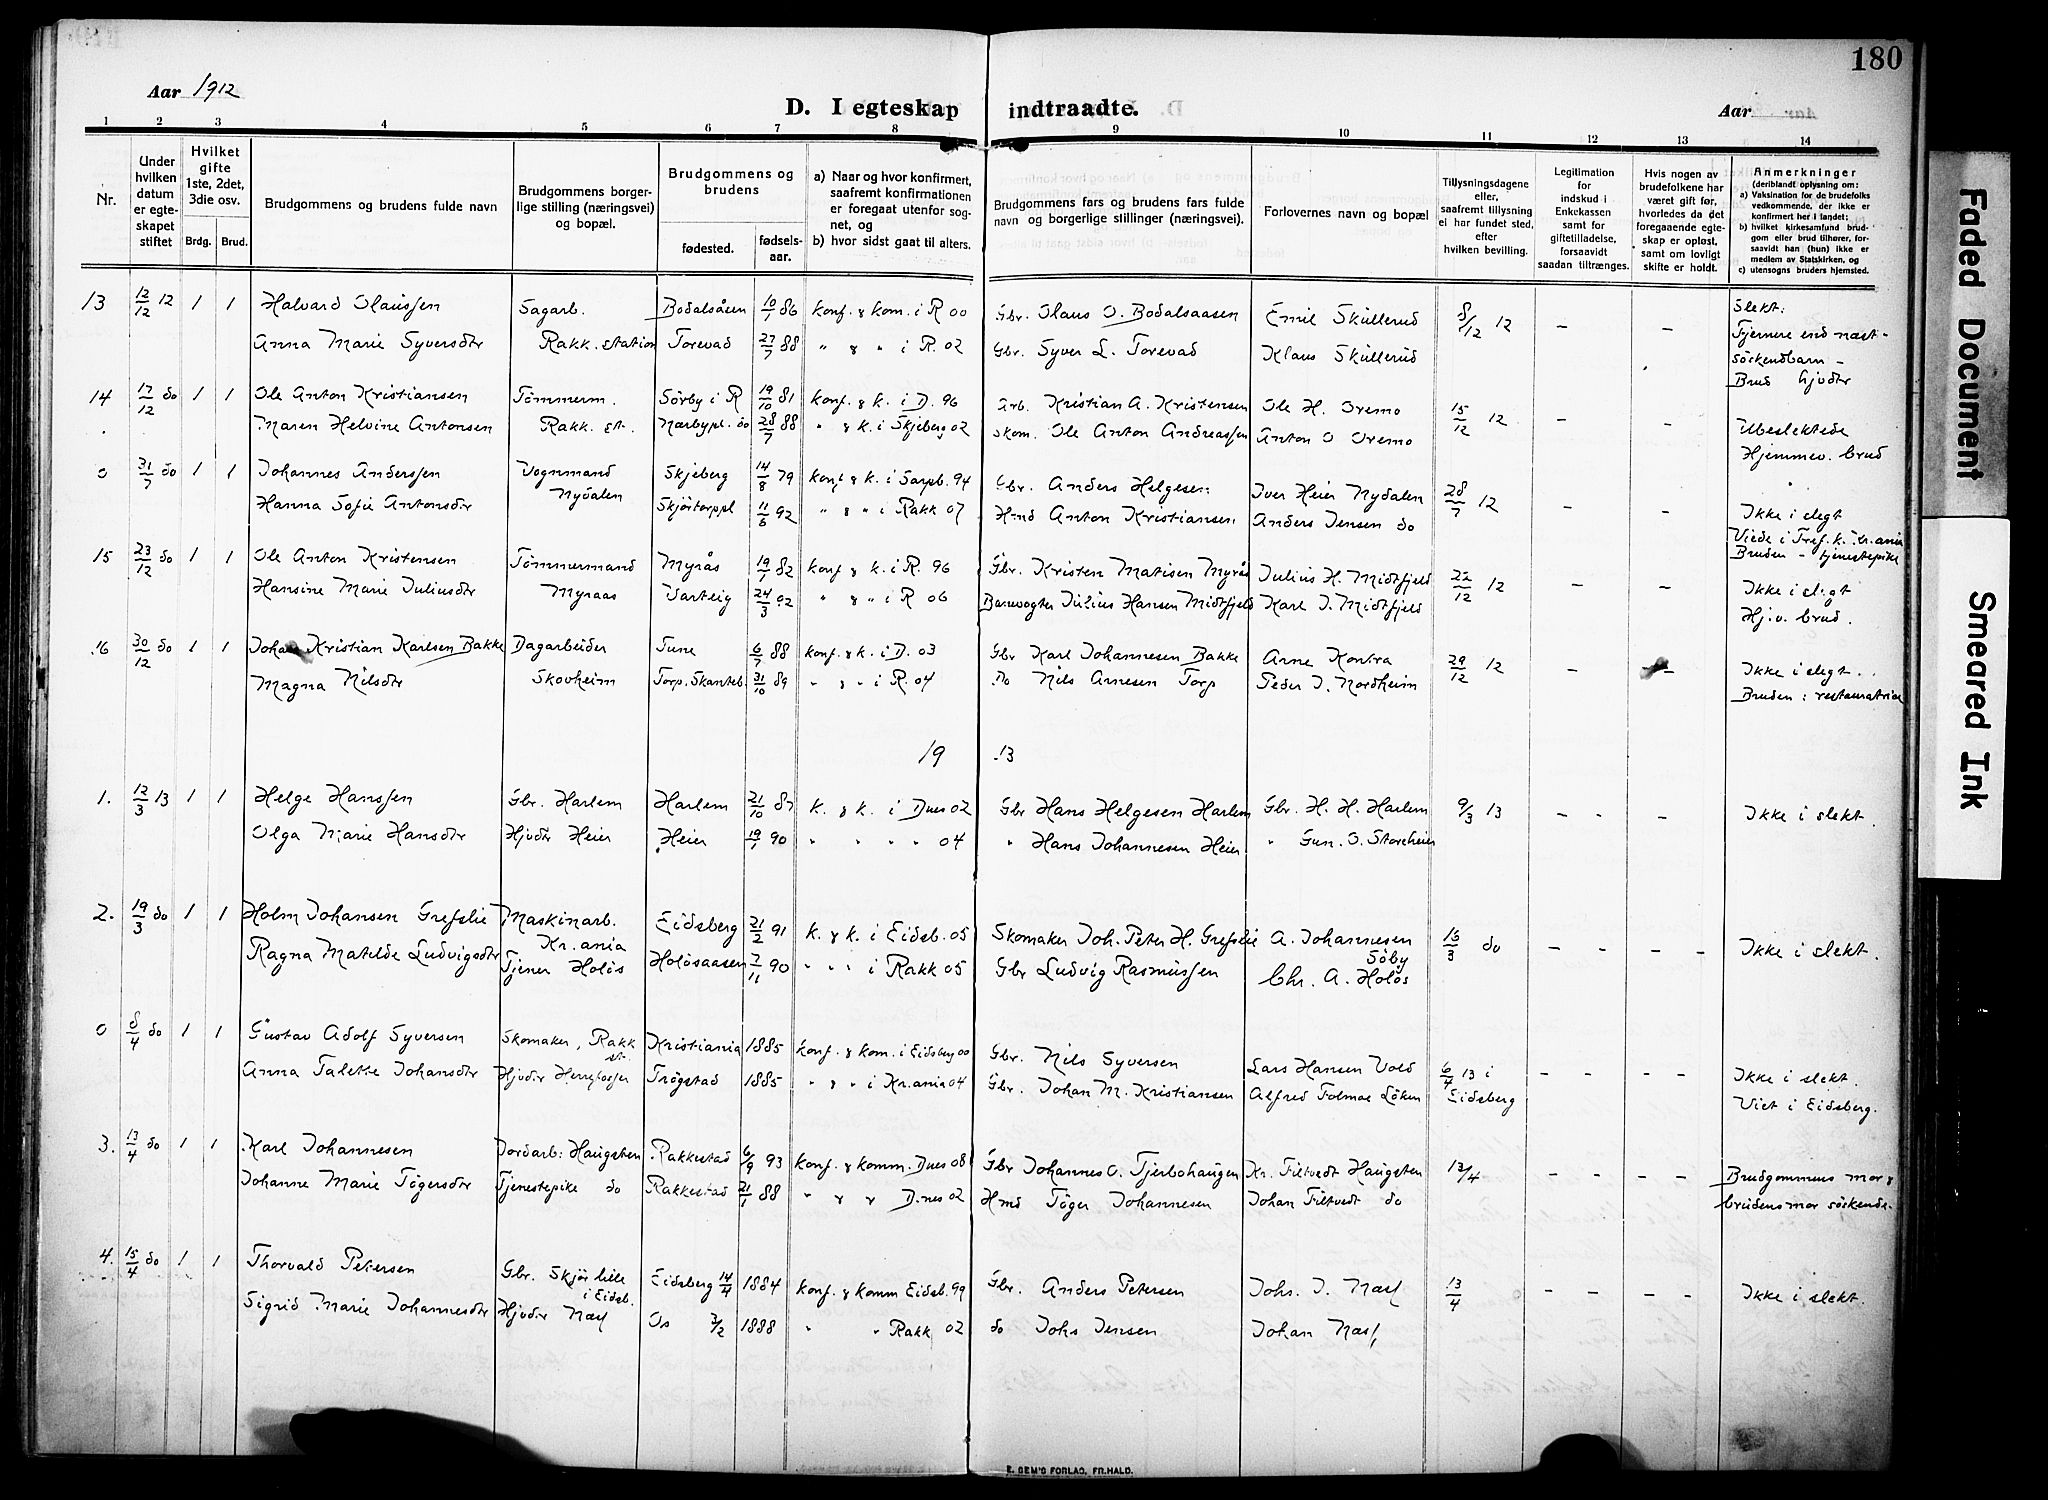 180
Aar 1912
D. I egteskap indtraadte.
Aar
1 2 3 4 5 6 7 8 9 10 11 12 13 14
Nr.
Under hvilken datum er egteskapet stiftet
Hvilket gifte 1ste, 2det, 3die osv.
Brdg. Brud.
Brudgommens og brudens fulde navn
Brudgommens borgerlige stilling (næringsvei) og bopæl.
Brudgommens og brudens
fødested. fødselsaar.
a) Naar og hvor konfirmert, saafremt konfirmationen er foregaat utenfor sognet, og
b) hvor sidst gaat til alters.
Brudgommens fars og brudens fars fulde navn og borgerlige stillinger (næringsvei).
Forlovernes navn og bopæl
Tillysningsdagene eller, saafremt tillysning ei har fundet sted, efter hvilken bevilling.
Legitimation for indskud i Enkekassen samt for giftetilladelse, forsaavidt saadan tiltrænges.
Hvis nogen av brudefolkene har været gift før, hvorledes da det foregaaende egteskap er opløst, samt om lovligt skifte er holdt.
Anmerkninger
(deriblandt oplysning om:
a) Vaksination for de brudefolks vedkommende, der ikke er konfirmert her i landet;
b) hvilket kirkesamfund brudgom eller brud tilhører, forsaavidt han (hun) ikke er medlem av Statskirken, og
c) utensogns bruders hjemsted.
13 12/12 12 1 1 Halvard Olaussen Sagarb. Bodalsåsen 10/1 86 konf. & kom. i R 00 Gbr. Olaus O. Bodalsaasen Emil Sküllerud 8/12 12 – – Slekt:
Anna Marie Syversdtr Rakk. station Torevad 27/7 88 " & " i R. 02 Gbr. Syver L. Torevad Klaus Sküllerud Fjernere end næstsöskendbarn –
Brud hjvdtr
14 17/12 do 1 1 Ole Anton Kristiansen Tömmerm. Sörby i R 19/10 81 konf. & k. i D. 96 Arb. Kristian A. Kristensen Ole H. Oremo 15/12 12 – – Ubeslektede
Maren Helvine Antonsen Rakk. st. Nærbypl. do 28/7 88 " & k. i Skjeberg 02 Skom. Ole Anton Andreassen Anton O Oremo Hjemmev. brud
0 31/7 do 1 1 Johannes Anderssen Vognmand Skjeberg 14/8 79 konf & k. i Sarpb. 94 Gbr. Anders Helgesen Iver Heier Nydalen 28/7 12 – – Ikke i slegt
Hanna Sofie Antonsdtr Nydalen Skjörtorppl 11/6 92 " & " i Rakk 07 Hmd Anton Kristiansen Anders Jensen do Viede i Tref. k. Kr.ania
Bruden – tjenestepike
15 23/12 do 1 1 Ole Anton Kristensen Tömmermand Myrås 19/1 82 konf & k. i R. 96 Gbr. Kristen Matisen Myrås Julius H. Midtfjeld 22/12 12 – – Ikke i slegt
Hansine Marie Juliusdtr Myraas Varteig 24/3 92 " & " i R 06 Banevogter Julius Hansen Midtfjeld Karl J. Midtfjeld Hj.v. brud.
16 30/12 do 1 1 Johan Kristian Karlsen Bakke Dagarbeider Tune 6/7 88 konf. & k. i D. 03 Gbr Karl Johannesen Bakke Arne Kontra 29/12 12 – – Ikke i slegt.
Magna Nilsdtr Skovheim Torp. Skanteb. 31/10 89 " & " i R. 04 Do Nils Arnesen Torp Peder J. Nordheim Bruden: restauratrice
19 13
1. 12/3 13 1 1 Helge Hanssen Gbr. Harlem Harlem 21/10 87 k. & k. i Dnes 02 Gbr Hans Helgesen Harlem Gbr. H. H. Harlem 9/3 13 – – – Ikke i slekt.
Olga Marie Hansdtr Hjvdtr Heier Heier 19/1 90 " " " " 04 " Hans Johannesen Heier " Gun. O. Storeheier
2. 19/3 do 1 1 Holm Johansen Grefslie Maskinarb. Kr.ania Eidsberg 21/2 91 k. & k. i Eidsb. 05 Skomaker Joh. Peter H. Grefslie A. Johannesen Söby 16/3 do – – – – Ikke i slekt.
Ragna Matilde Ludvigsdtr Tjener Holös Holösaasen 7/11 90 " " " i Rakk 05 Gbr Ludvig Rasmussen Chr. A. Holös
0 8/4 do 1 1 Gustav Adolf Syversen Skomaker, Rakk st. Kristiania 1885 konf. & kom. i Eidsberg 00 Gbr. Nils Syversen Lars Hansen Vold 6/4 13 i Eidsberg – – – – Ikke i slekt.
Anna Talette Johansdtr Hjvdtr Herrefosser Trögstad 1885 " & " i Kr.ania 04 Gbr. Johan M. Kristiansen Alfred Folmoe Löken Viet i Eidsberg.
3. 13/4 do 1 1 Karl Johannesen Jordarb. Haugsten Rakkestad 6/9 93 konf. & komm. Dnes 08 Gbr Johannes O. Tjerbohaugen Kr. Filtvedt Haugsten 13/4 – – – – Brudgommens mor &
Johanne Marie Tögersdtr Tjenestepike do Rakkestad 21/1 88 " & & D.nes 02 Hmd Töger Johannesen Johan Filtvedt do brudens mor söskende.
4. 15/4 do 1 1 Thorvald Petersen Gbr. Skjör lille i Eidsb. Eidsberg 14/4 1884 konf. & komm Eidsb. 99 Gbr. Anders Petersen Johs. J. Næss 13/4 – – – – Ikke i slekt.
Sigrid Marie Johannesdtr Hjvdtr Næss Os 7/2 1888 " " Rakk 02 do Johs Jensen Johan Næss
E. SEM'S FORLAG, FR.HALD.
Faded Document
Smeared Ink